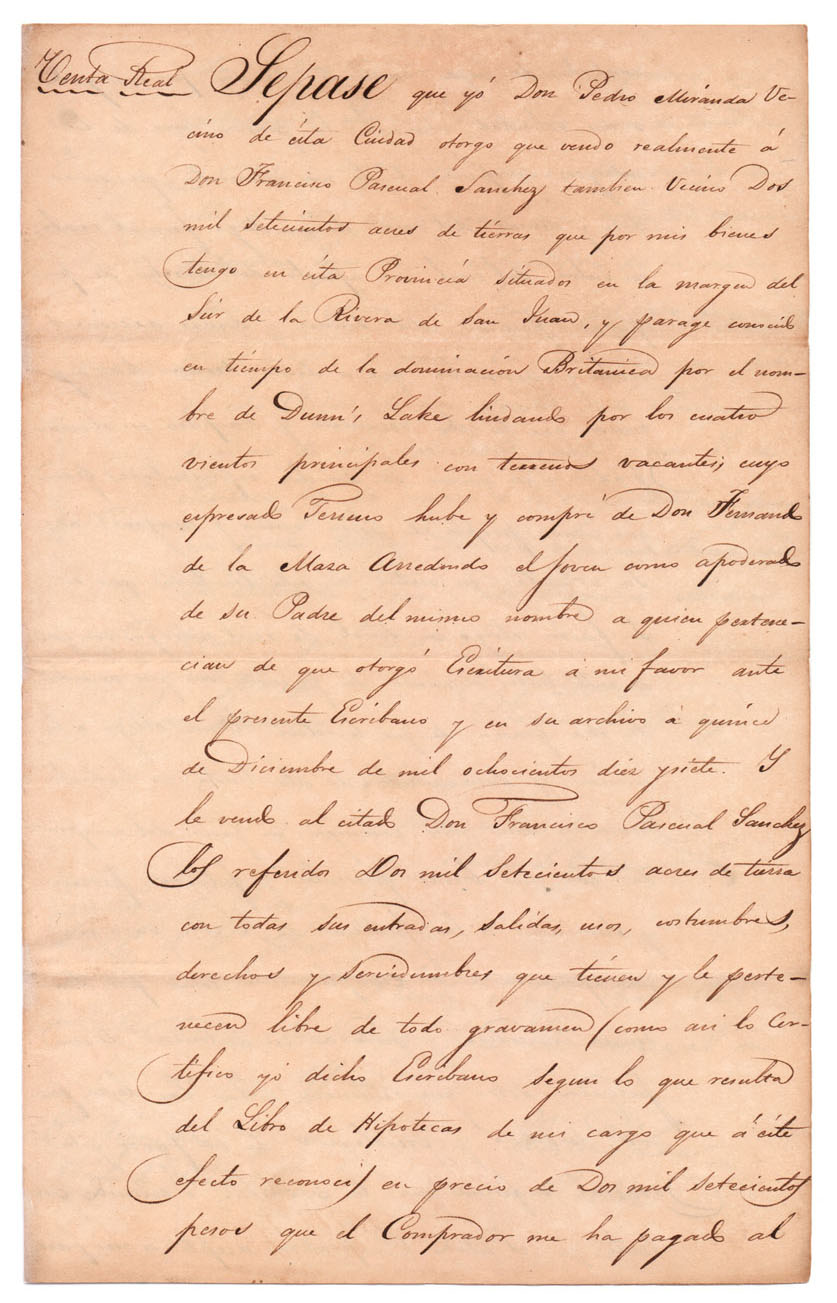 Venta Real Sepase que yó Don Pedro Miranda Ve-
cino de ésta Ciudad otorgo que vendo realmente á
Don Francisco Pascual Sanchez tambien Vecino Dos
mil setecientos acres de tierras que por mis bienes
tengo en ésta Provincia situados en la margen del
Sur de la Rivera de San Juan, y parage conocido
en tiempo de la dominación Britanica por el nom-
bre de Dunn's Lake lindando por los cuatro
vientos principales con terrenos vacantes; cuyo
expresado Terreno hube y compré de Don Fernando
de la Maza Arredondo el Joven como apoderado
de su Padre del mismo nombre a quien pertene-
cian de que otorgó Escritura á mi favor ante
el presente Escribano y en su archivo á quince
de Diciembre de mil ochocientos diez y siete. Y
le vendo al citado Don Francisco Pascual Sanchez
los referidos Dos mil setecientos acres de tierra
con todas sus entradas, salidas, usos, costumbres,
derechos y servidumbres que tienen y le perte-
necen libre de todo gravamen (como asi lo Cer-
tifico yó dicho Escribano segun lo que resulta
del Libro de Hipotecas de mi cargo que á éste
efecto reconoci) en precio de Dos mil setecientos
pesos que el Comprador me ha pagado al